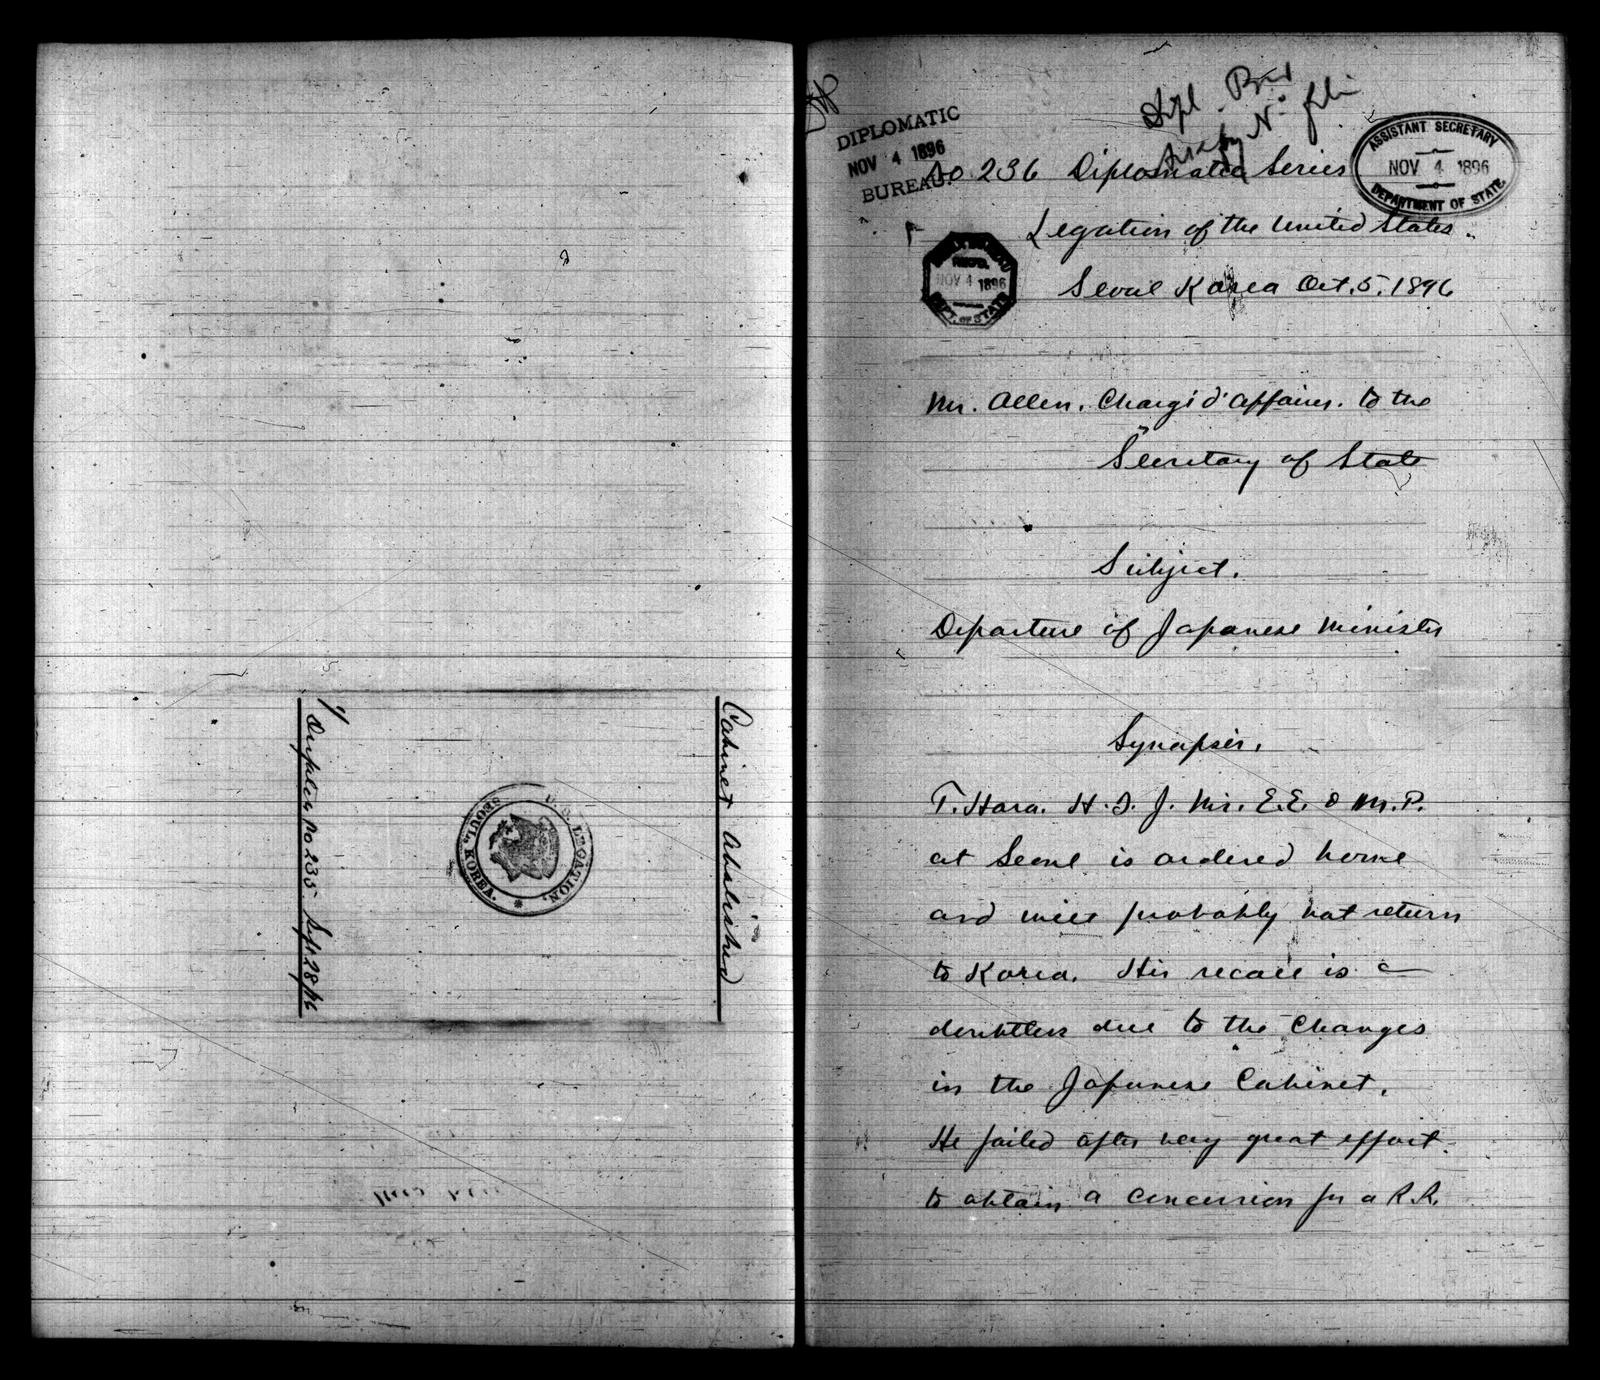 Cabinet Abolished
U.S. LEGATION.
SEOUL, KOREA.
1/ Dispatch No 235 Sept 28/96
DIPLOMATIC
NOV 4 1896
BUREAU.
ASSISTANT SECRETARY
NOV 4 1896
DEPARTMENT OF STATE.
No 236 Diplomatic Series
Legation of the United States.
RECD.
NOV 4 1896
DEPT. OF STATE
Seoul Korea Oct. 5. 1896
Mr. Allen, Chargé d'affaires. to the
Secretary of State
Subject.
Departure of Japanese Minister
Synopsis.
T. Hara. H. I. J. Ms. E.E. & M.P.
at Seoul is ordered home
and will probably not return
to Korea. His recall is
doubtless due to the changes
in the Japanese Cabinet.
He failed after very great effort
to obtain a concession for a R.R.